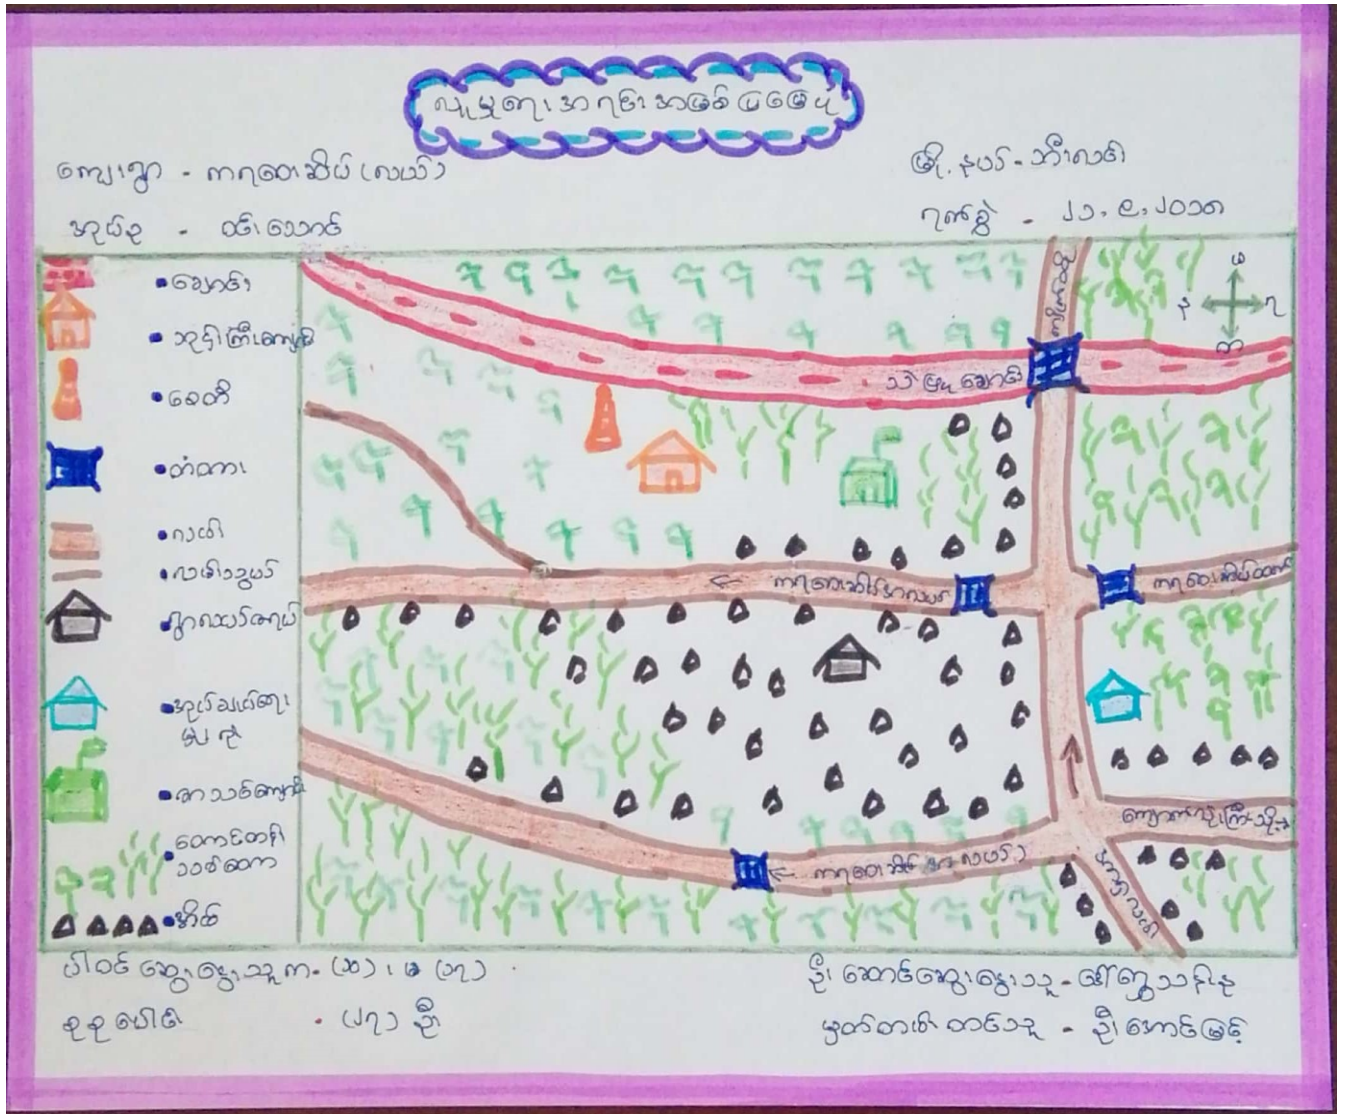 လူမှုရေးအရင်းအမြစ်ပြမြေပုံ
ကျေးရွာ - ကရဝေးဆိပ် (လယ်)
မြို့နယ် - ဘီးလင်း
အုပ်စု - ဝင်းသောင်
ရက်စွဲ - ၂၁.၉.၂၀၁၈
ချောင်း
ဘုန်းကြီးကျောင်း
စေတီ
တံတား
လမ်း
လမ်းသွယ်
အုပ်ချုပ်ရေး
မှူး
စာသင်ကျောင်း
တောင်တန်း
သစ်တော
အိမ်
သဲဖြူချောင်း
ကရဝေးဆိပ်အလယ်
ကရဝေးဆိပ်အထက်
ကရဝေးဆိပ်အလယ်
ကျောက်လုံးကြီးသို့
ပါဝင်ဆွေးနွေးသူ ကျ-(၁၀)၊ မ (၁၇)
စုစုပေါင်း - (၂၇) ဦး
ဦးဆောင်ဆွေးနွေးသူ - ဒေါ်
မှတ်တမ်းတင်သူ - ဦးအောင်မြင့်